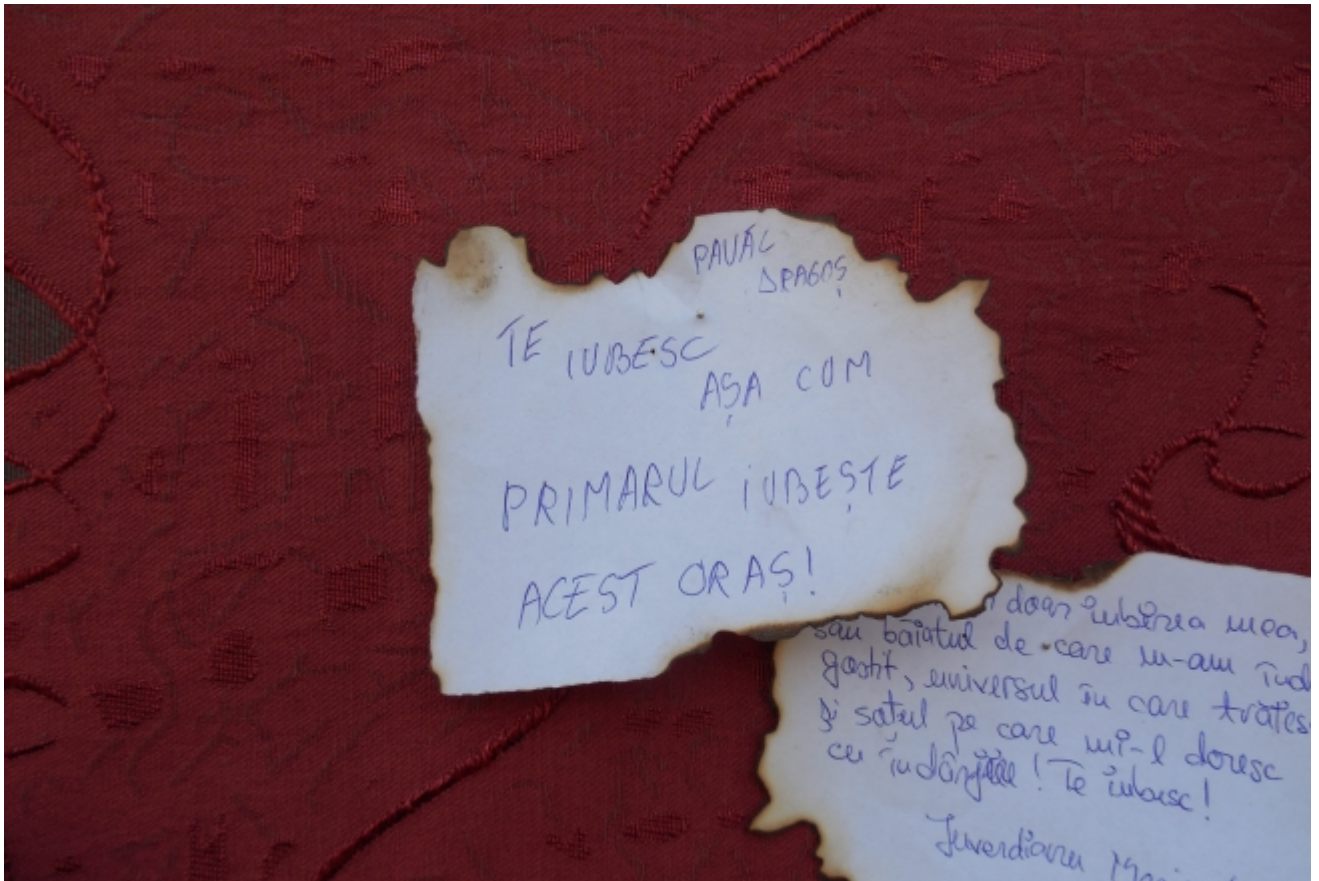 PAVĂL
DRAGOȘ
TE IUBESC
AȘA CUM
PRIMARUL IUBEȘTE
ACEST ORAȘ!
doar iubirea mea,
sau băiatul de care m-am înd

universul în care trăies
și soțul pe care mi-l doresc
cu ! Te iubesc!